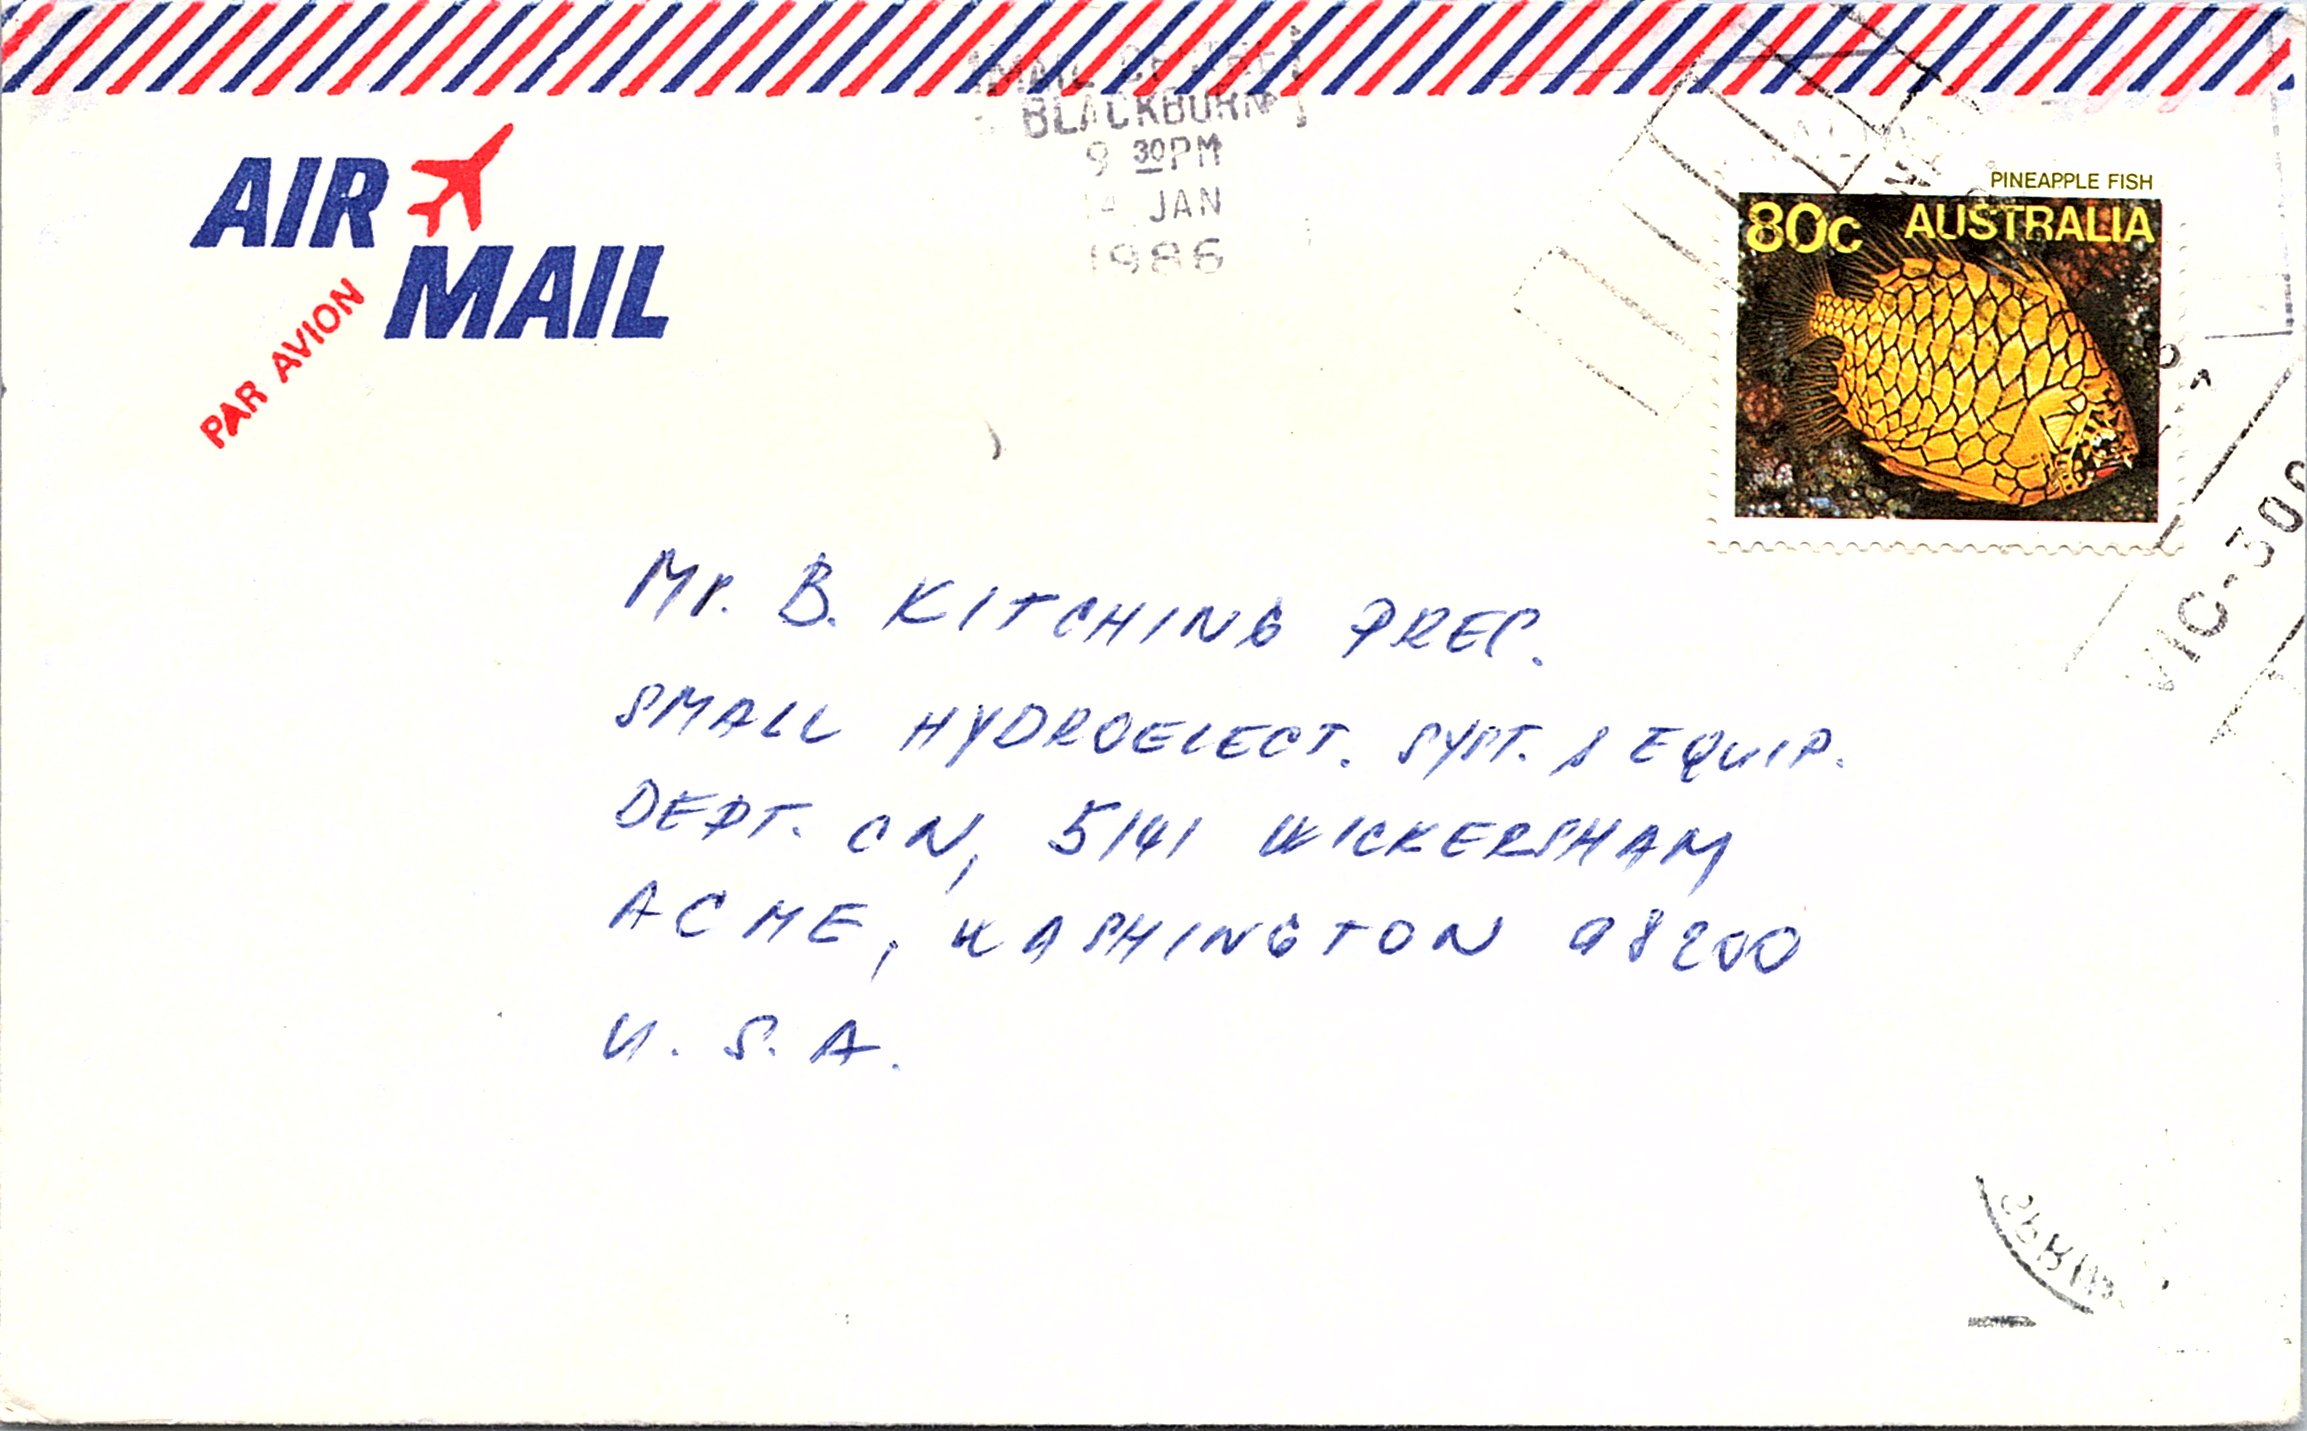 MAIL CENTRE
BLACKBURN
9 30PM
14 JAN
1986
AIR
MAIL
PAR AVION
PINEAPPLE FISH
80c AUSTRALIA
VIC-300
Mr. B. KITCHING PRES.
SMALL HYDROELECT. SYST. & EQUIP.
DEPT. CN, 5141 WICKERSHAM
ACME, WASHINGTON 98200
U. S. A.